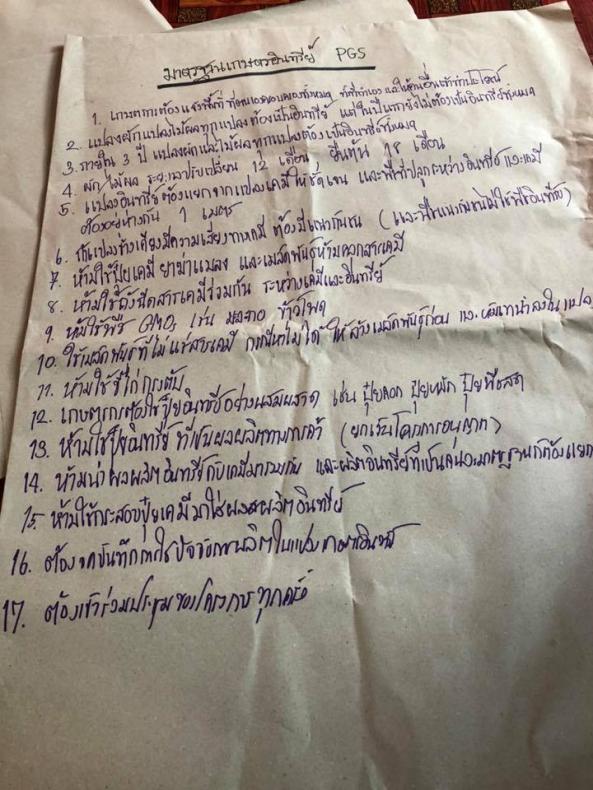 มาตรฐานเกษตรอินทรีย์ PGS
1. เกษตรกรต้องแจ้งพื้นที่ที่ตนเองครอบครองทั้งหมด ทั้งที่ทำเอง และให้คนอื่นเข้าทำประโยชน์
2. แปลงผักแปลงไม้ผลทุกแปลงต้องเป็นอินทรีย์ แต่ในปีแรกยังไม่ต้องเป็นอินทรีย์ทั้งหมด
3. ภายใน 3 ปี แปลงผักและไม้ผลทุกแปลงต้องเป็นอินทรีย์ทั้งหมด
4. ผัก ไม้ผล ระยะเวลาปรับเปลี่ยน 12 เดือน ยืนต้น 18 เดือน
5. แปลงอินทรีย์ต้องแยกจากแปลงเคมีให้ชัดเจน และพื้นที่ปลูกระหว่างอินทรีย์ และเคมี
ต้องอยู่ห่างกัน 1 เมตร
6. ถ้าแปลงข้างเคียงมีความเสี่ยงจากเคมี ต้องมีแนวกันชน (และพืชแนวกันชนไม่ใช่พืชอินทรีย์)
7. ห้ามใช้ปุ๋ยเคมี ยาฆ่าแมลง และเมล็ดพันธุ์ห้ามคลุกสารเคมี
8. ห้ามใช้ถังฉีดสารเคมีร่วมกัน ระหว่างเคมีและอินทรีย์
9. ห้ามใช้พืช GMOs เช่น มะละกอ ข้าวโพด
10. ใช้เมล็ดพันธุ์ที่ไม่แช่สารเคมี กรณีหาไม่ได้ ให้ล้างเมล็ดพันธุ์ก่อน และห้ามเทน้ำลงในแปลง
11. ห้ามใช้ขี้ไก่กรงตับ
12. เกษตรกรต้องใช้ปุ๋ยอินทรีย์อย่างผสมผสาน เช่น ปุ๋ยคอก ปุ๋ยหมัก ปุ๋ยพืชสด
13. ห้ามใช้ปุ๋ยอินทรีย์ ที่เป็นผลผลิตทางการค้า (ยกเว้นโครงการอนุญาต)
14. ห้ามนำผลผลิตอินทรีย์กับเคมีมารวมกัน และผลิตอินทรีย์ที่เป็นคนละมาตรฐานก็ต้องแยก
15. ห้ามใช้กระสอบปุ๋ยเคมีมาใส่ผลผลิตอินทรีย์
16. ต้องจดบันทึกการใช้ปัจจัยการผลิตในแปลงเกษตรอินทรีย์
17. ต้องเข้าร่วมประชุมของโครงการทุกครั้ง